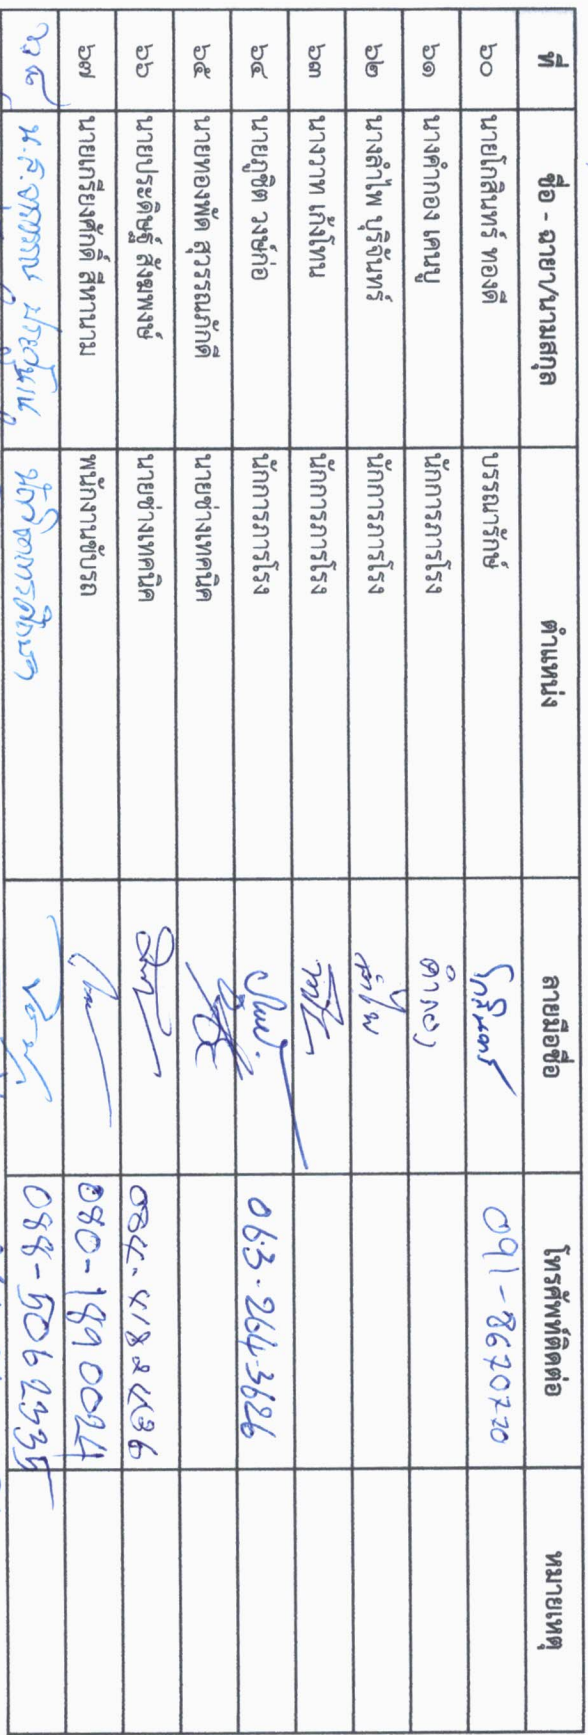 ที่ ชื่อ - ฉายา/นามสกุล ตำแหน่ง ลายมือชื่อ โทรศัพท์ติดต่อ หมายเหตุ
๖๐ นายโกสินทร์ ทองดี บรรณารักษ์ โกสินทร์ 091-8670720
๖๑ นางคำกอง เคนบู นักการภารโรง คำกอง
๖๒ นางลำไพ บุริจันทร์ นักการภารโรง ลำไพ
๖๓ นางวาท เก้งโทน นักการภารโรง
๖๔ นายภูชิต วงษ์ก่อ นักการภารโรง 063-264-3626
๖๕ นายทองพัด สุวรรณภักดี นายช่างเทคนิค
๖๖ นายประดิษฐ์ สังฆพงษ์ นายช่างเทคนิค
๖๗ นายเกรียงศักดิ์ สีหานาม พนักงานขับรถ 080-1890024
น.ส. นักวิชาการศึกษา 088-5062335